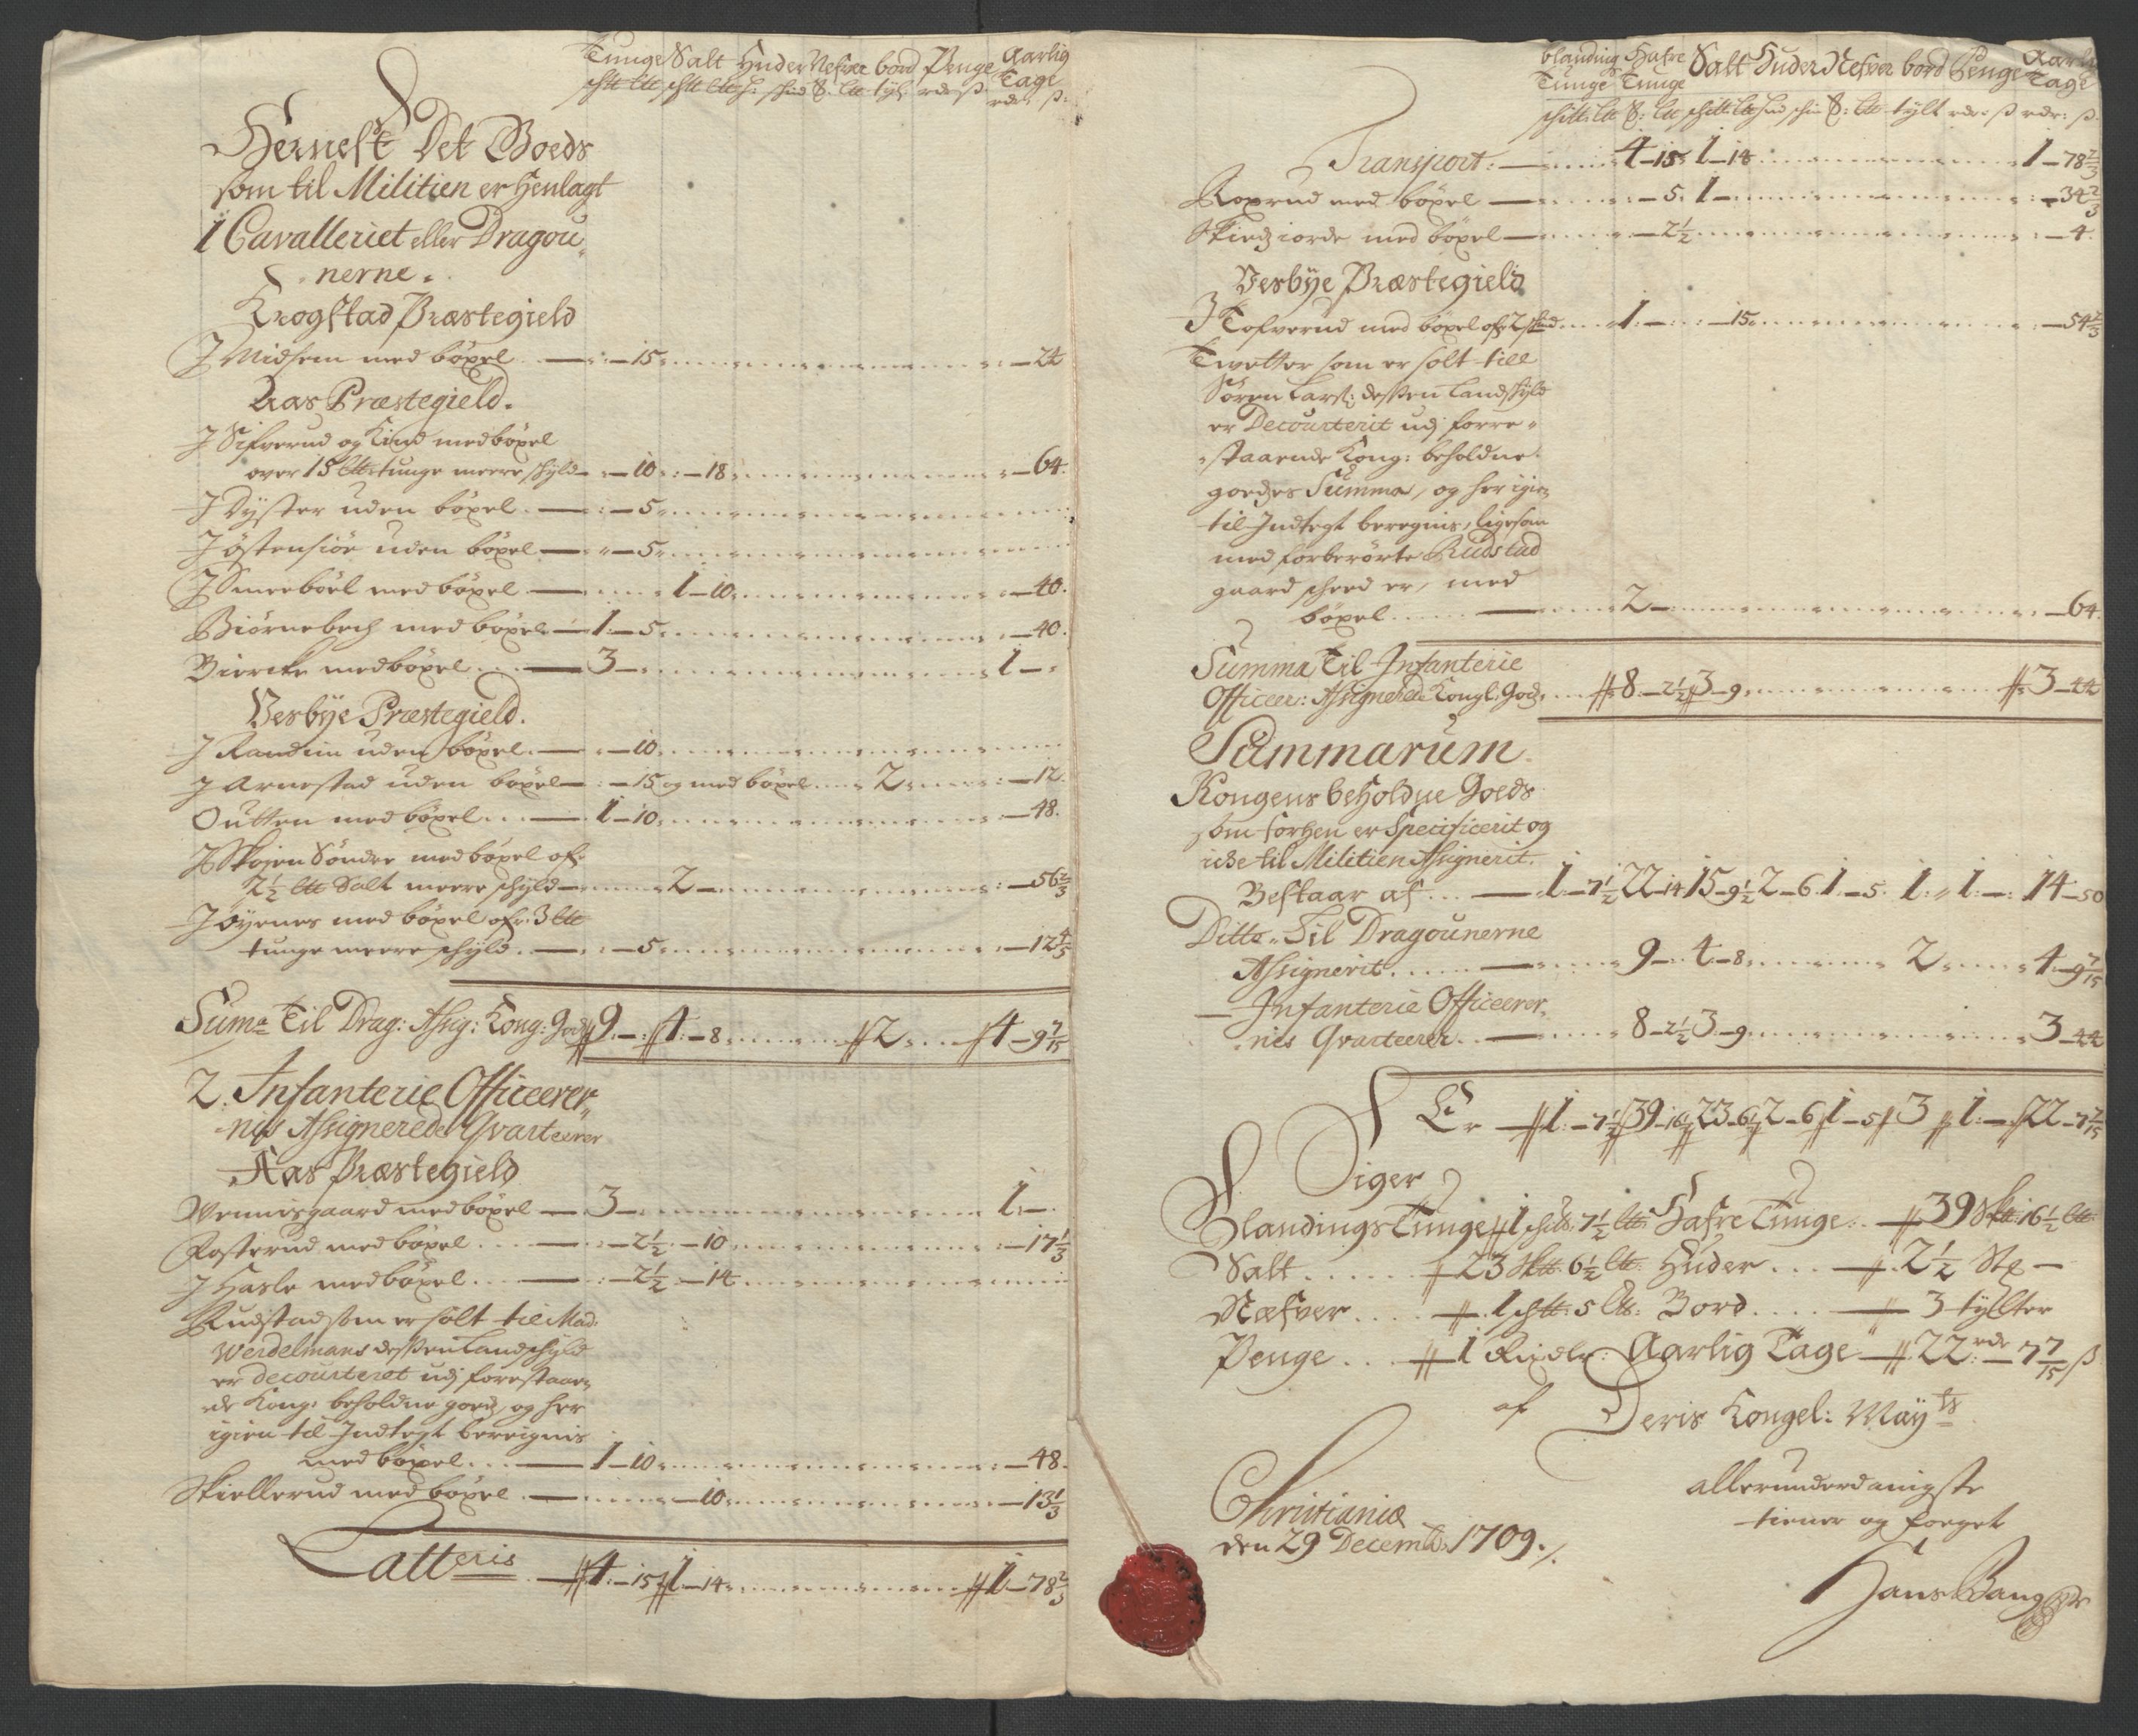 Tunge Salt Huder Nefver bord Penge Aarlig
Tage
Hernest Det Goeds
som til Militien er Henlagt
1 Cavalleriet eller Dragou
nerne.
Krogstad Præstegield
J Midsem med böxel — : — 15 — 24
Aas Præstegield.
J Sifverud og Lind med böxel
over 15 ltt tunge meere schyld — : — 10 : — 18 : — 64.
J Dyster uden böxel. — : — 5
J östensiöe uden böxel — : — 5
J Smeeböel med böxel — 1 — 10 : — 40.
Biörnebech med böxel — 1 — 5 : — 40.
Biercke med böxel — 3 — 1 —
Vesbye Præstegield.
J Randim uden böxel. — : — 10
J Arnestad uden böxel — : — 15 og med böxel 2 : — 12.
Outten med böxel — 1 — 10 — 48.
J Skoien Söndre med böxel ofr
2½ ltt Salt meere schyld — 2 — : — 56⅔
J öyenes med böxel ofr 3 ltt
tunge meere schyld. — : — 5 — 12⅘
Suma Til Drag: Assig: Kong: Gods 9 — : 4 — 8 2 4 — 9 7/15
2. Infanterie Officeerer
nis Assignerede Qvarteerer
Aas Præstegield
Wennisgaard med böxel — 3 — 1 —
Rosterud med böxel — : — 2½ — 10 : — 17⅓
J Hasle med böxel — : — 2½ — 14
Rudstad som er solt til Mad:
Werdelmans dessen Landschyld
er decourteret udj forestaaen
de Kong: beholdne goedz, og her
igien til Indtegt bereignis
med böxel — 1 — 10 : — 48.
Skiellerud med böxel — 10 — 13⅓
Latteris — 4 — 15 1 — 14 1 — 78⅔
blanding Hafre Salt Huder Nefver bord Penge Aarli
Tunge Tunge Tage
Transport: — 4 — 15 1 — 14 1 — 78⅔
Roxrud med böxel — : — 5. 1 — : — 34⅔
Skiedziorde med böxel — : — 2½ : — 4.
Vesbye Præstegield
J Tofverud med böxel ofr 2 skind 1 — : — 15 : — 54⅔
Tvetter som er solt till
Sören Lars: dessen Landschyld
er Decourterit udj forre
staaende Kong: beholdne
goedzes Summa, og her igien
til Indtegt beregnis, ligesom
med forberörte Rudstad
gaard scheed er, med
böxel — 2 — : — 64.
Summa Til Infanterie
Officeer: Assignerede Kongl: Gods 8 — 2½ 3 — 9 3 — 44
Summarum
Kongens beholdne Goeds
som forhen er Specificerit og
icke til Militien Assignerit.
Bestaar af — 1 — 7½ 22 — 14 15 — 9½ 2 — 6. 1 — 5. 1. 1. — : 14 — 50
Ditto Til Dragounerne
Assignerit — 9 — 4 — 8 2 4 — 9 7/15
— Infanterie Officeerer
nis Qvarteerer — 8 — 2½ 3 — 9 3 — 44
Er — 1. — 7½ 39 — 16½ 23 — 6½ 2 — 6 1 — 5 3 1. — 22 — 7 7/15
Siger
Blandings Tunge 1 schtt: 7½ ltt: Hafre Tunge — 39 Sktt 16½ ltt:
Salt — 23 Sktt. 6½ ltt: Huder — 2½ Stx —
Næfver — 1 schtt: 5 ltt: Bord — 3 tyllter
Penge — 1 Rixdlr: Aarlig Tage — 22 rdr — 7 7/15 ß
af Deris Kongel: Mayts
allerunderdanigste
tiener og foeget
Hans Bang
Christiania
den 29 Decemb: 1709.